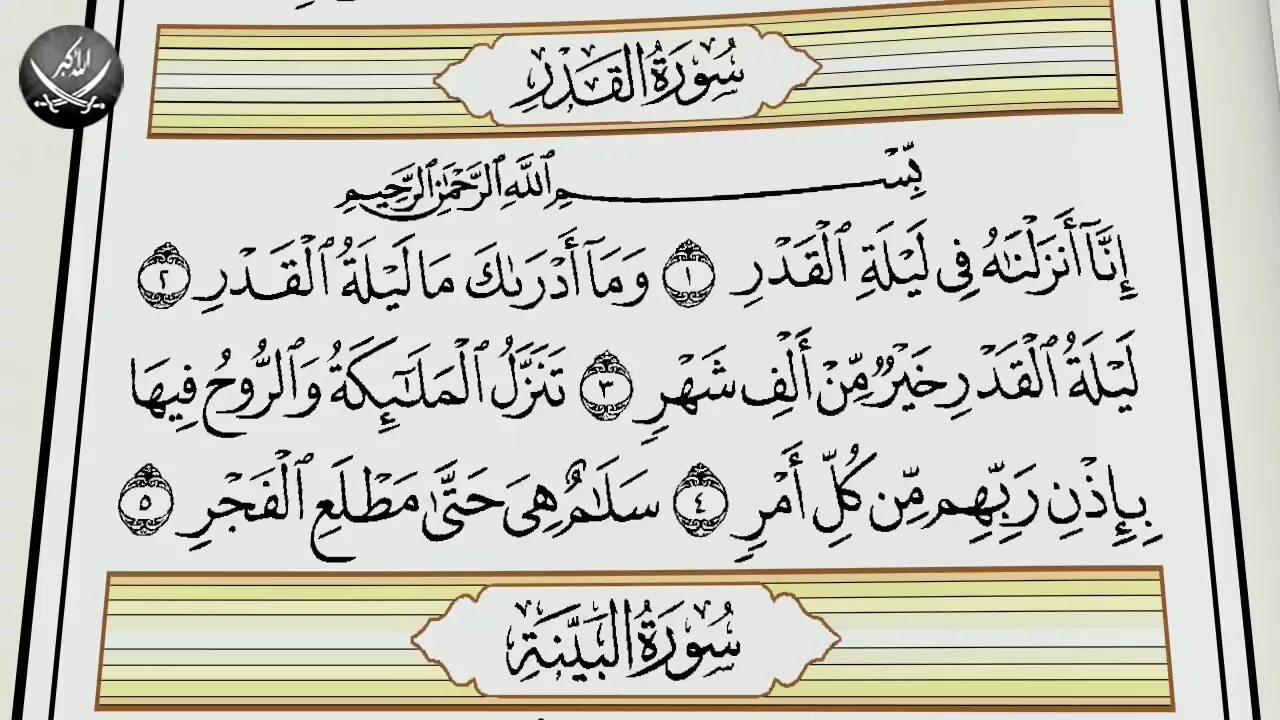 الله أكبر
سُورَةُ القَدْرِ
بِّسْمِ ٱللَّهِ ٱلرَّحْمَٰنِ ٱلرَّحِيمِ
إِنَّآ أَنزَلْنَٰهُ فِى لَيْلَةِ ٱلْقَدْرِ ١ وَمَآ أَدْرَىٰكَ مَا لَيْلَةُ ٱلْقَدْرِ ٢
لَيْلَةُ ٱلْقَدْرِ خَيْرٌ مِّنْ أَلْفِ شَهْرٍ ٣ تَنَزَّلُ ٱلْمَلَٰٓئِكَةُ وَٱلرُّوحُ فِيهَا
بِإِذْنِ رَبِّهِم مِّن كُلِّ أَمْرٍ ٤ سَلَٰمٌ هِىَ حَتَّىٰ مَطْلَعِ ٱلْفَجْرِ ٥
سُورَةُ البَيِّنَةِ